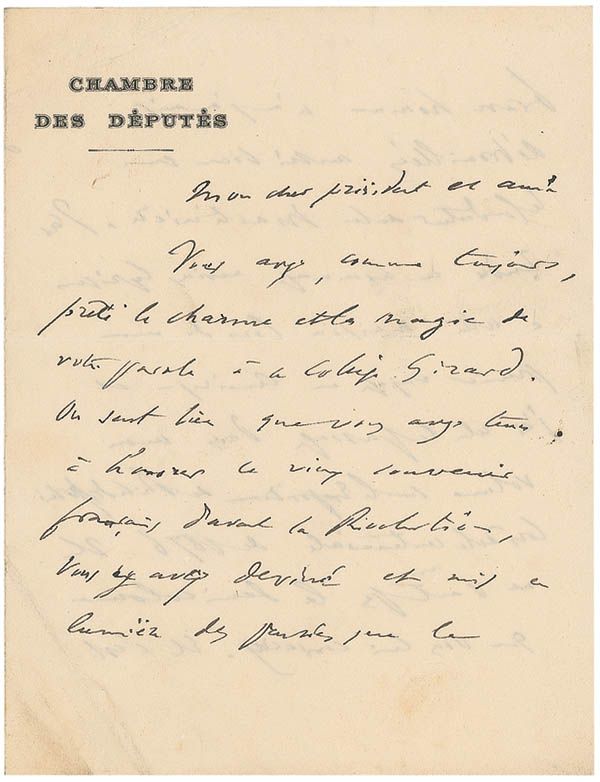 CHAMBRE
DES DÉPUTÉS
Mon cher président et ami
Vous avez, comme toujours,
prêté le charme et la magie de
votre parole à ce Collège Girard.
On sent bien que vous avez tenu
à honorer ce vieux souvenir
français d'avant la Révolution,
vous y avez deviné et mis en
lumière des pensées que le